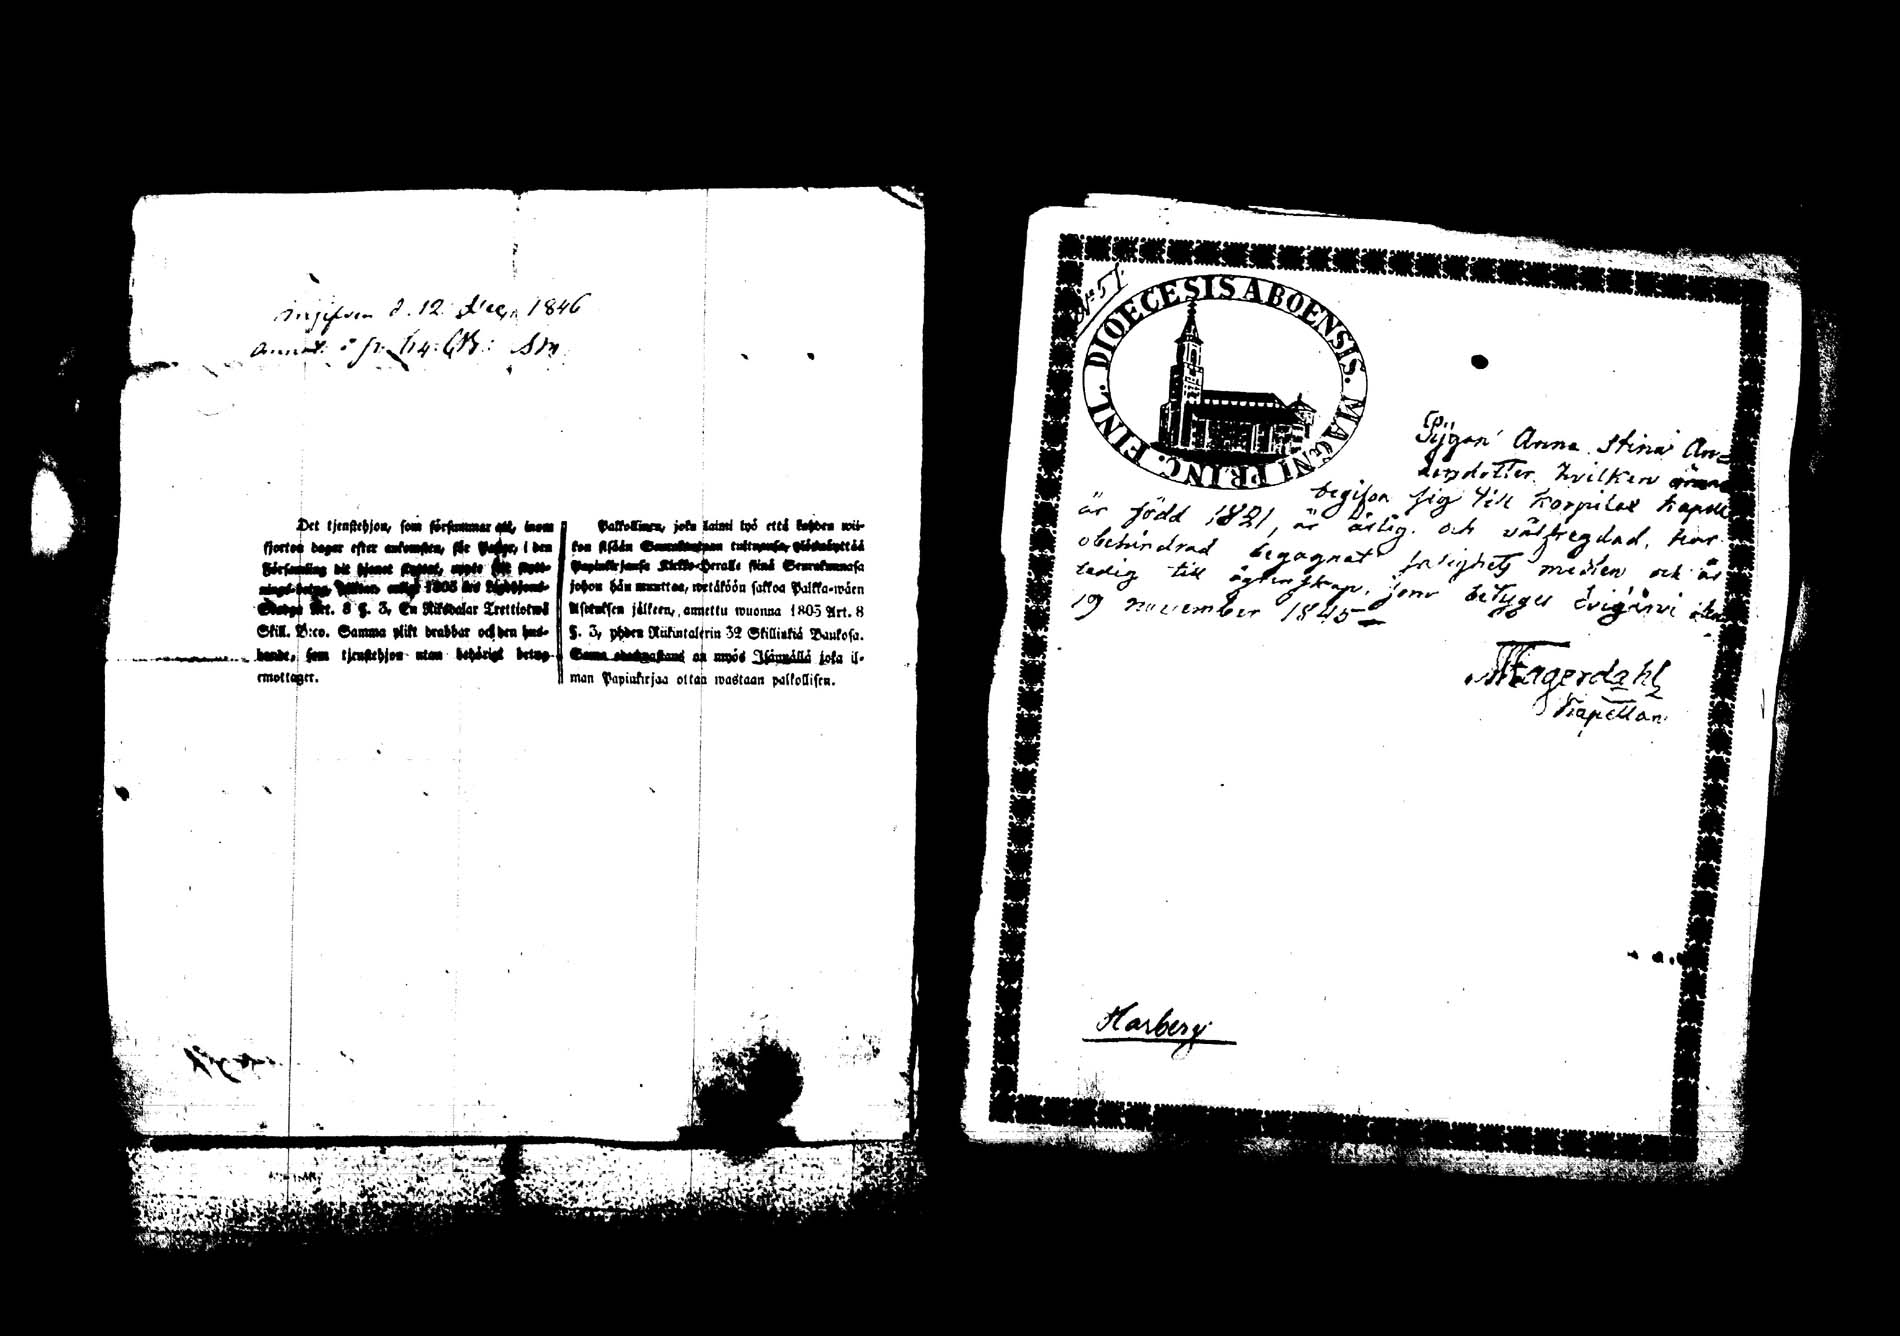 d. 12 Dec. 1846
Det tjenstehjon, som försummar att, inom
fjorton dagar efter ankomsten, för Pastor, i den
Församling dit hjonet flyttat, uppte sitt flytt-
1805 års
Stadga Art. 8 §. 3, En Riksdaler Trettiotwå
Skill. B:co. Samma plikt drabbar och den hus-
bonde, som tjenstehjon utan behörigt betyg
emottager.
Palkollinen, joka laimi lyö että kahden wii-
kon sisään Seurakuntaan tultuansa, ylösnäyttää
Papinkirjansa Kirkko-Herralle siinä Seurakunnasa
johon hän muuttaa, wetäköön sakkoa Palkka-wäen
Asetuksen jälkeen, annettu wuonna 1805 Art. 8
§. 3, yhden Riikintalerin 32 Skillinkiä Bankosa.
Sama on myös Isännällä joka il-
man Papinkirjaa ottaa wastaan palkollisen.
N:o 57.
DIOECESIS ABOENSIS. MAGNI PRINC. FINL.
Pigan Anna Stina An-
dersdotter hvilken ärnar
begifva sig till Korpilax Kapell
är född 1821, är ärlig och välfregdad, har
obehindrad begagnat salighets medlen och är
ledig till ägtenskap, som betygas
19 november 1845
Fagerdahl
Kapellan
Harberg